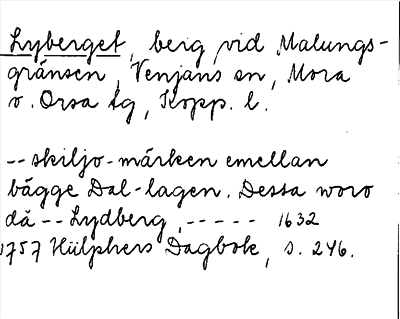 Lyberget, berg vid Malungs-
gränsen, Venjans sn, Mora
o. Orsa tg, Kopp. l.
-- skiljo-märken emellan
bägge Dal-lagen. Dessa woro
då -- Lydberg, ----- 1632
1757 Hülphers Dagbok, s. 246.